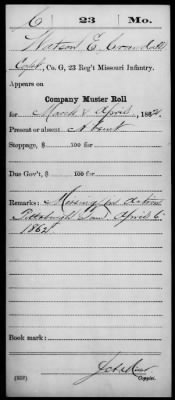 C 23 Mo.
Watson E. Crandall
Capt., Co. G, 23 Reg't Missouri Infantry.
Appears on
Company Muster Roll
for March & April, 1862.
Present or absent Absent
Stoppage, $ 100 for
Due Gov't, $ 100 for
Remarks: Missing in Action
Pittsburgh Land. April 6
1862
Book mark:
(858) Copyist.